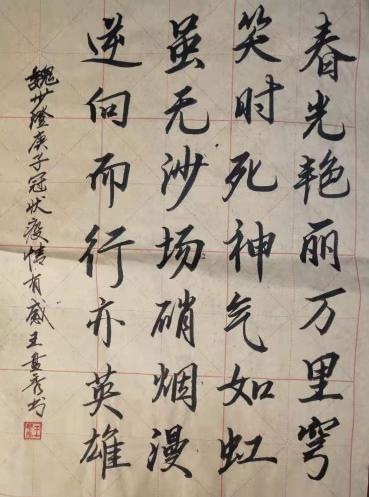 春光艳丽万里穹
笑时死神气如虹
虽无沙场硝烟漫
逆向而行亦英雄
魏少隆庚子冠状疫情有感王孟秀书